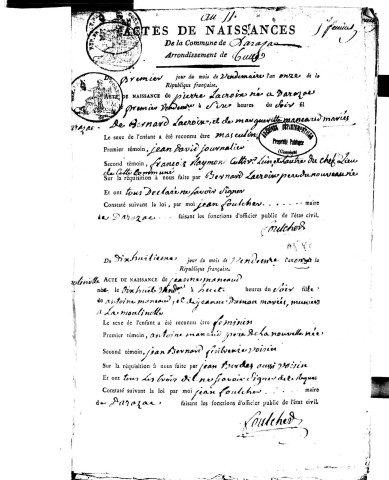 an 11.
1er feuillet
ACTES DE NAISSANCES
De la Commune de Darazac
Arrondissement de
Premier jour du mois de Vendemiaire l'an onze de la
République française.
ACTE DE NAISSANCE de pierre Lacroix né a Darazac
premier Vendem à Six heures du Soir fils
de Bernard Lacroix et de margueritte maneaud mariés
Le sexe de l'enfant a été reconnu être masculin
Premier témoin, jean David journalier
Second témoin, francois Raymon cultiv. L'un et l'autre du chef Lieu
de Cette Commune
Sur la réquisition à nous faite par Bernard Lacroix pere du nouveau né
Et ont tous Declaré ne Savoir Signer
Constaté suivant la loi, par moi jean foulched maire
de Darazac faisant les fonctions d'officier public de l'état civil.
foulched
ARCHIVES DÉPARTEMENTALES
Propriété Publique
(Corrèze)
Du dixhuitieme jour du mois de Vendemre l'an onze de la
République française.
ACTE DE NAISSANCE de jeanne maneaud
née le dixhuit Vendre à huit heures du Soir fille
de antoine maneaud, et de jeanne mariés, muniers
a La moulinelle
Le sexe de l'enfant a été reconnu être feminin
Premier témoin, antoine maneaud pere de la nouvelle née
Second témoin, jean Bernard voisin
Sur la réquisition à nous faite par jean aussi voisin
Et ont tous Les trois dit ne Savoir Signer de ce Requis
Constaté suivant la loi par moi jean foulched maire
de Darazac faisant les fonctions d'officier public de l'état civil.
foulched